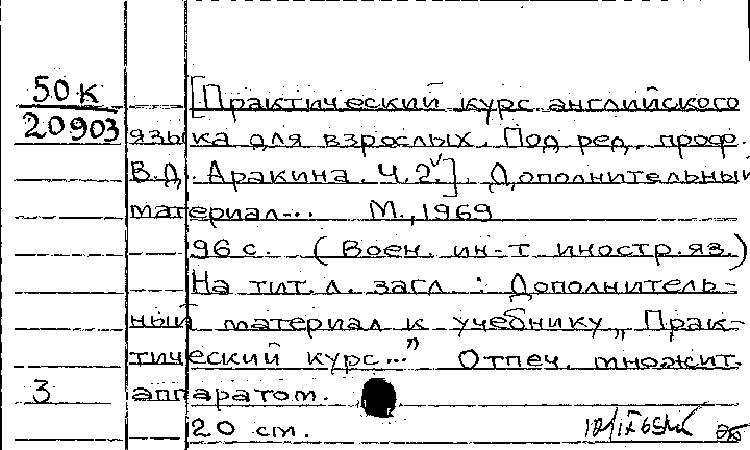 50К
20903
[Практический курс английского
языка для взрослых. Под ред. проф.
В.Д. Аракина. Ч. 2.]. Дополнительный
материал... М., 1969
96 с. (Воен. ин-т иностр. яз.)
На тит. л. загл.: Дополнитель-
ный материал к учебнику „Прак-
тический курс...” Отпеч. множит.
3 аппаратом.
20 см.